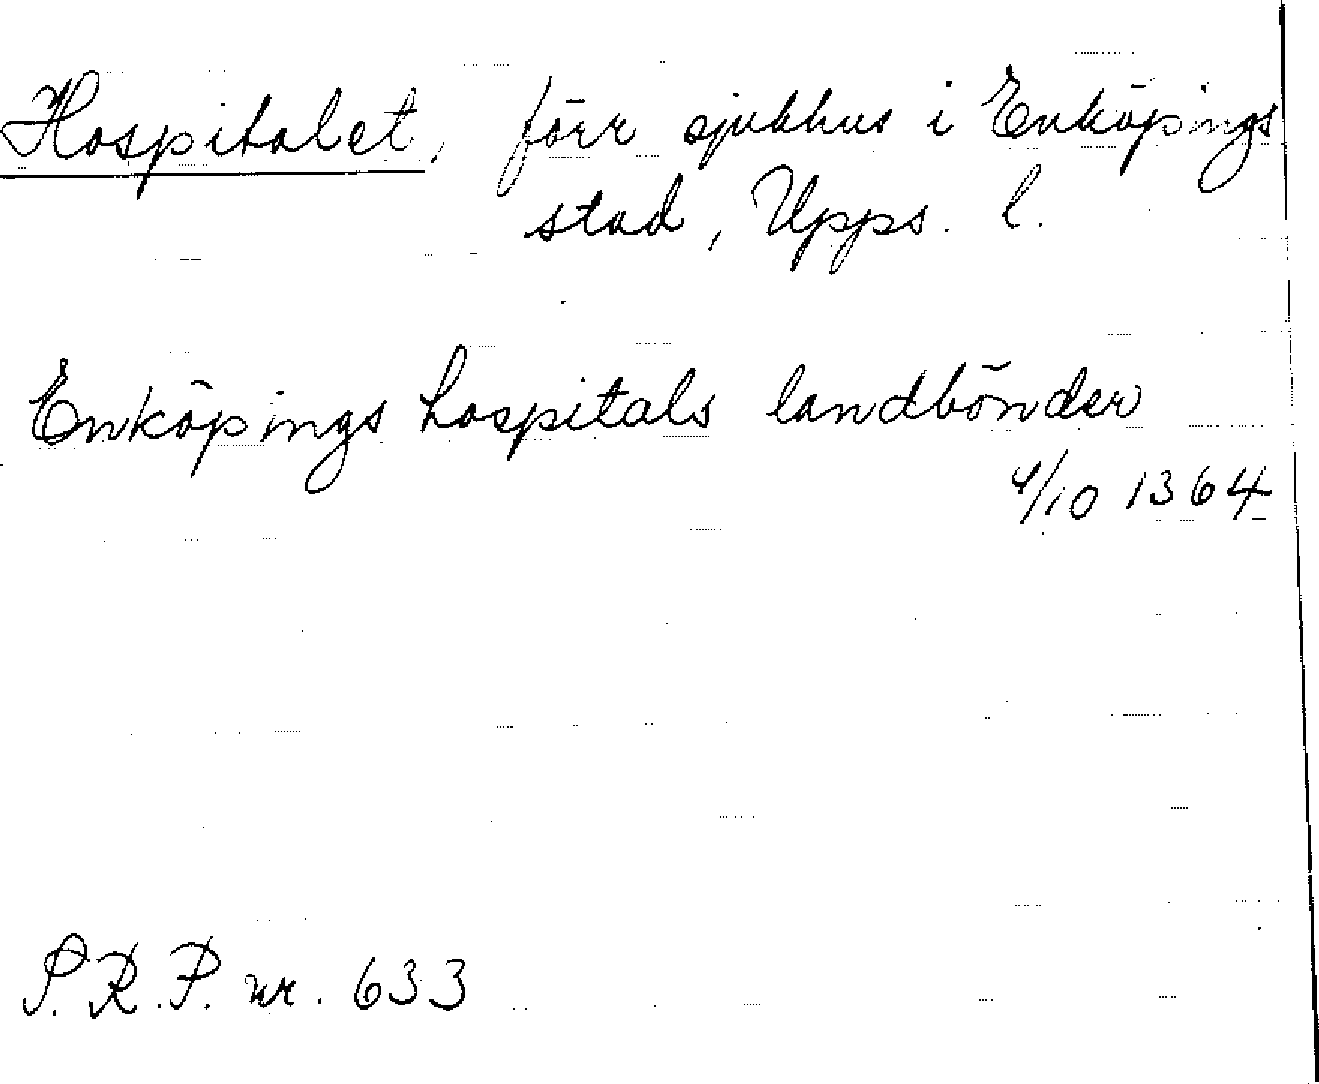 Hospitalet, förr sjukhus i Enköpings
stad, Upps. l.
Enköpings hospitals landbönder
4/10 1364
S.R.P. nr. 633